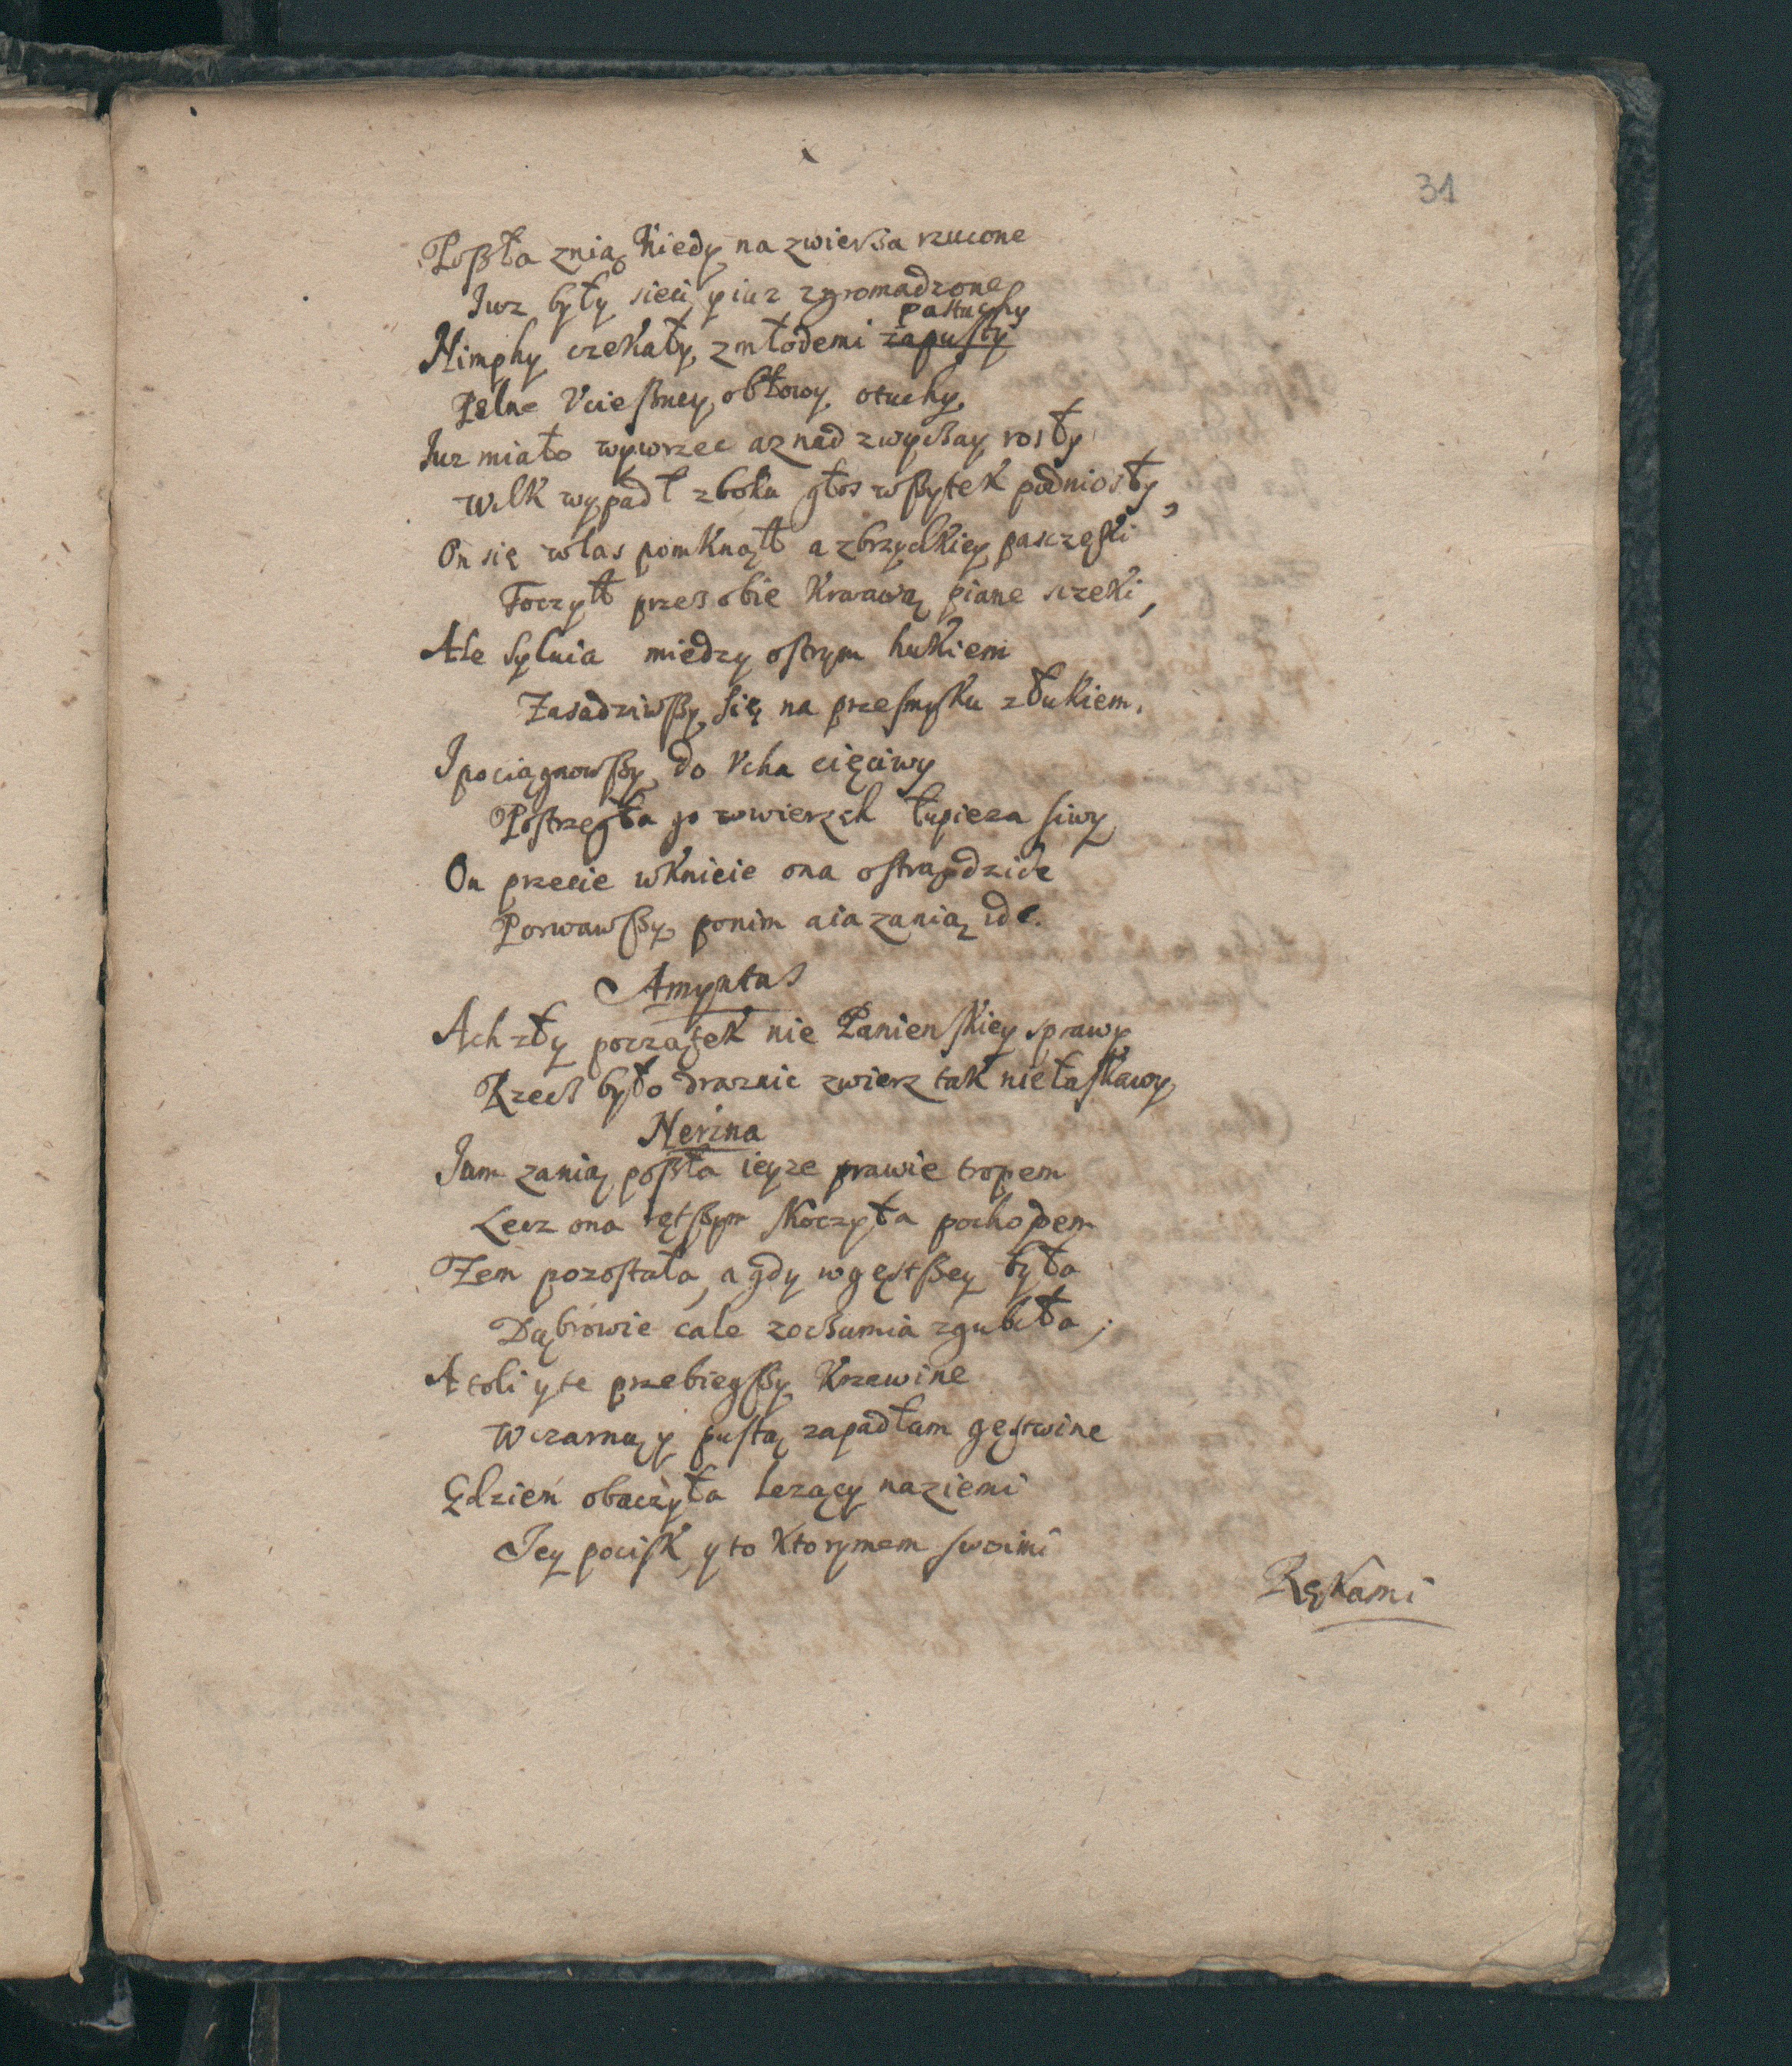 31
Poßła znią Kiedy na zwierza rzucone
Iuz były sieci, y iuz zgromadzone
pastuchy
Nimphy czekały, zmłodemi zapusty
Pełne Vcießney, obłowy, otuchy,
Iuz miało wywrzec az nad zwyczay rosły
Wilk wypadł zboku głos wßytek podniosły,
On się wlas pomknął a zbrzydkiey pasczęki
Toczył przes obie Krwawą piane sczeki,
Ale Syluia miedzy ostrym hukiem
Zasadziwßy się na przesmyku złukiem,
I pociągnowßy do Vcha cięciwy
Postrzegła go wwierzch łupieza siwy
On przecie wknieie ona ostrą dzide
Porwawßy ponim aia zanią ide.
Amyntas
Ach zły początek nie Panienskiey sprawy
Rzecz było draznic zwierz tak niełaskawy
Nerina
Iam zanią poßła ieyze prawie tropem
Lecz ona rętßym skoczyła pochopem
Zem pozostała, a gdy wgęstßey była
Dąbrowie cale zoczu mia zgubiła;
Atoli y te przebiegßy Krzewine
Wczarną y pustą zapadłam gęstwine
Gdziem obaczyła lezący naziemi
Iey pocisk, y to Ktorymem swoimi
Rękami